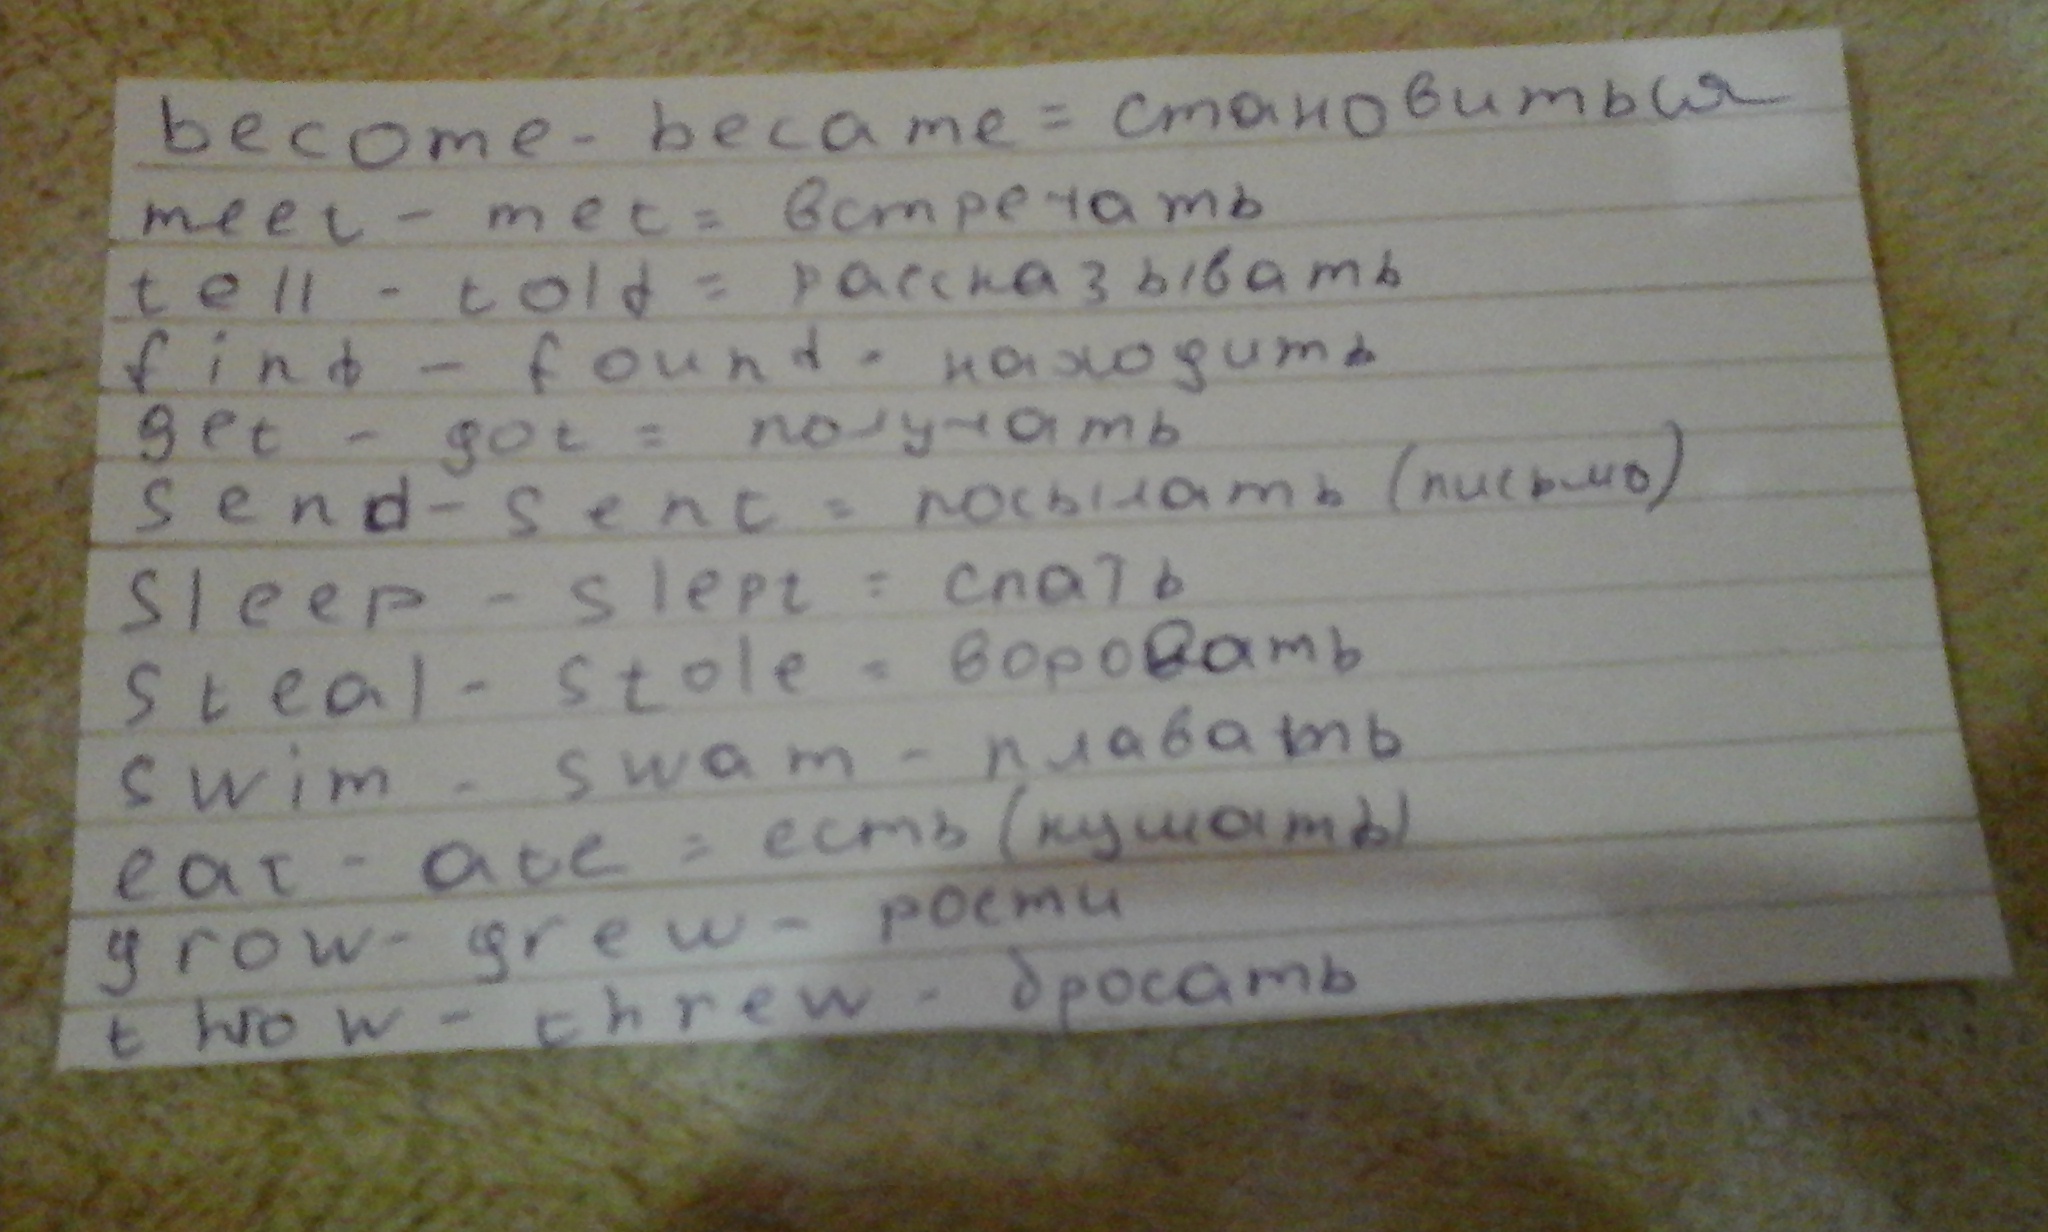 become - became = становиться
meet - met = встречать
tell - told = рассказывать
find - found - находить
get - got = получать
send - sent = посылать (письмо)
sleep - slept = спать
steal - stole = воровать
swim - swam - плавать
eat - ate = есть (кушать)
grow - grew - рости
throw - threw - бросать